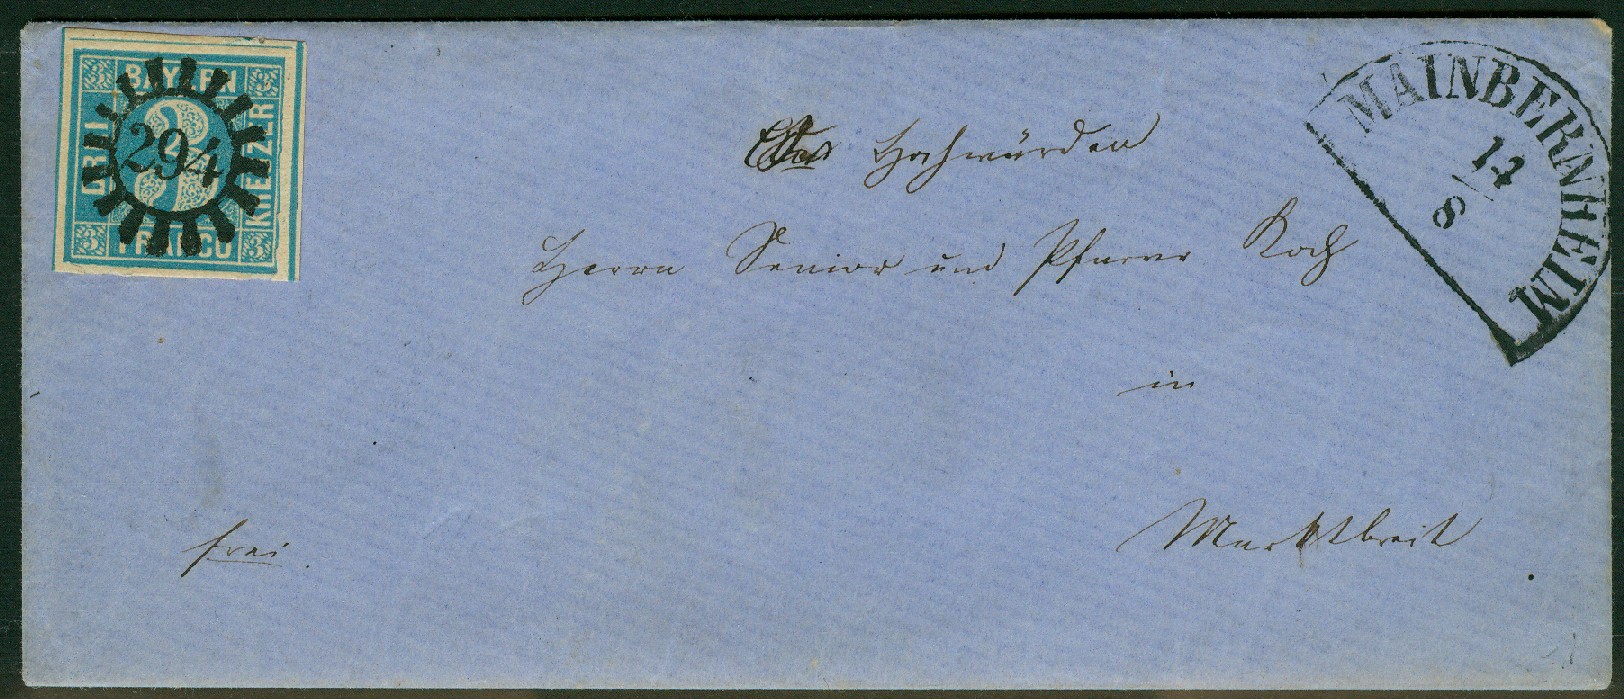 BAYERN
DREI
KREUZER
FRANCO
3 3 3 3
3
294
MAINBERNHEIM
14
8
Hochwürden
Herrn Senior und Pfarrer Koch
in
Marktbreit
frei.